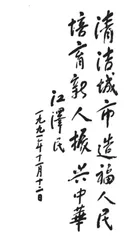 清洁城市造福人民
培育新人振兴中華
江泽民
一九九一年十一月十一日